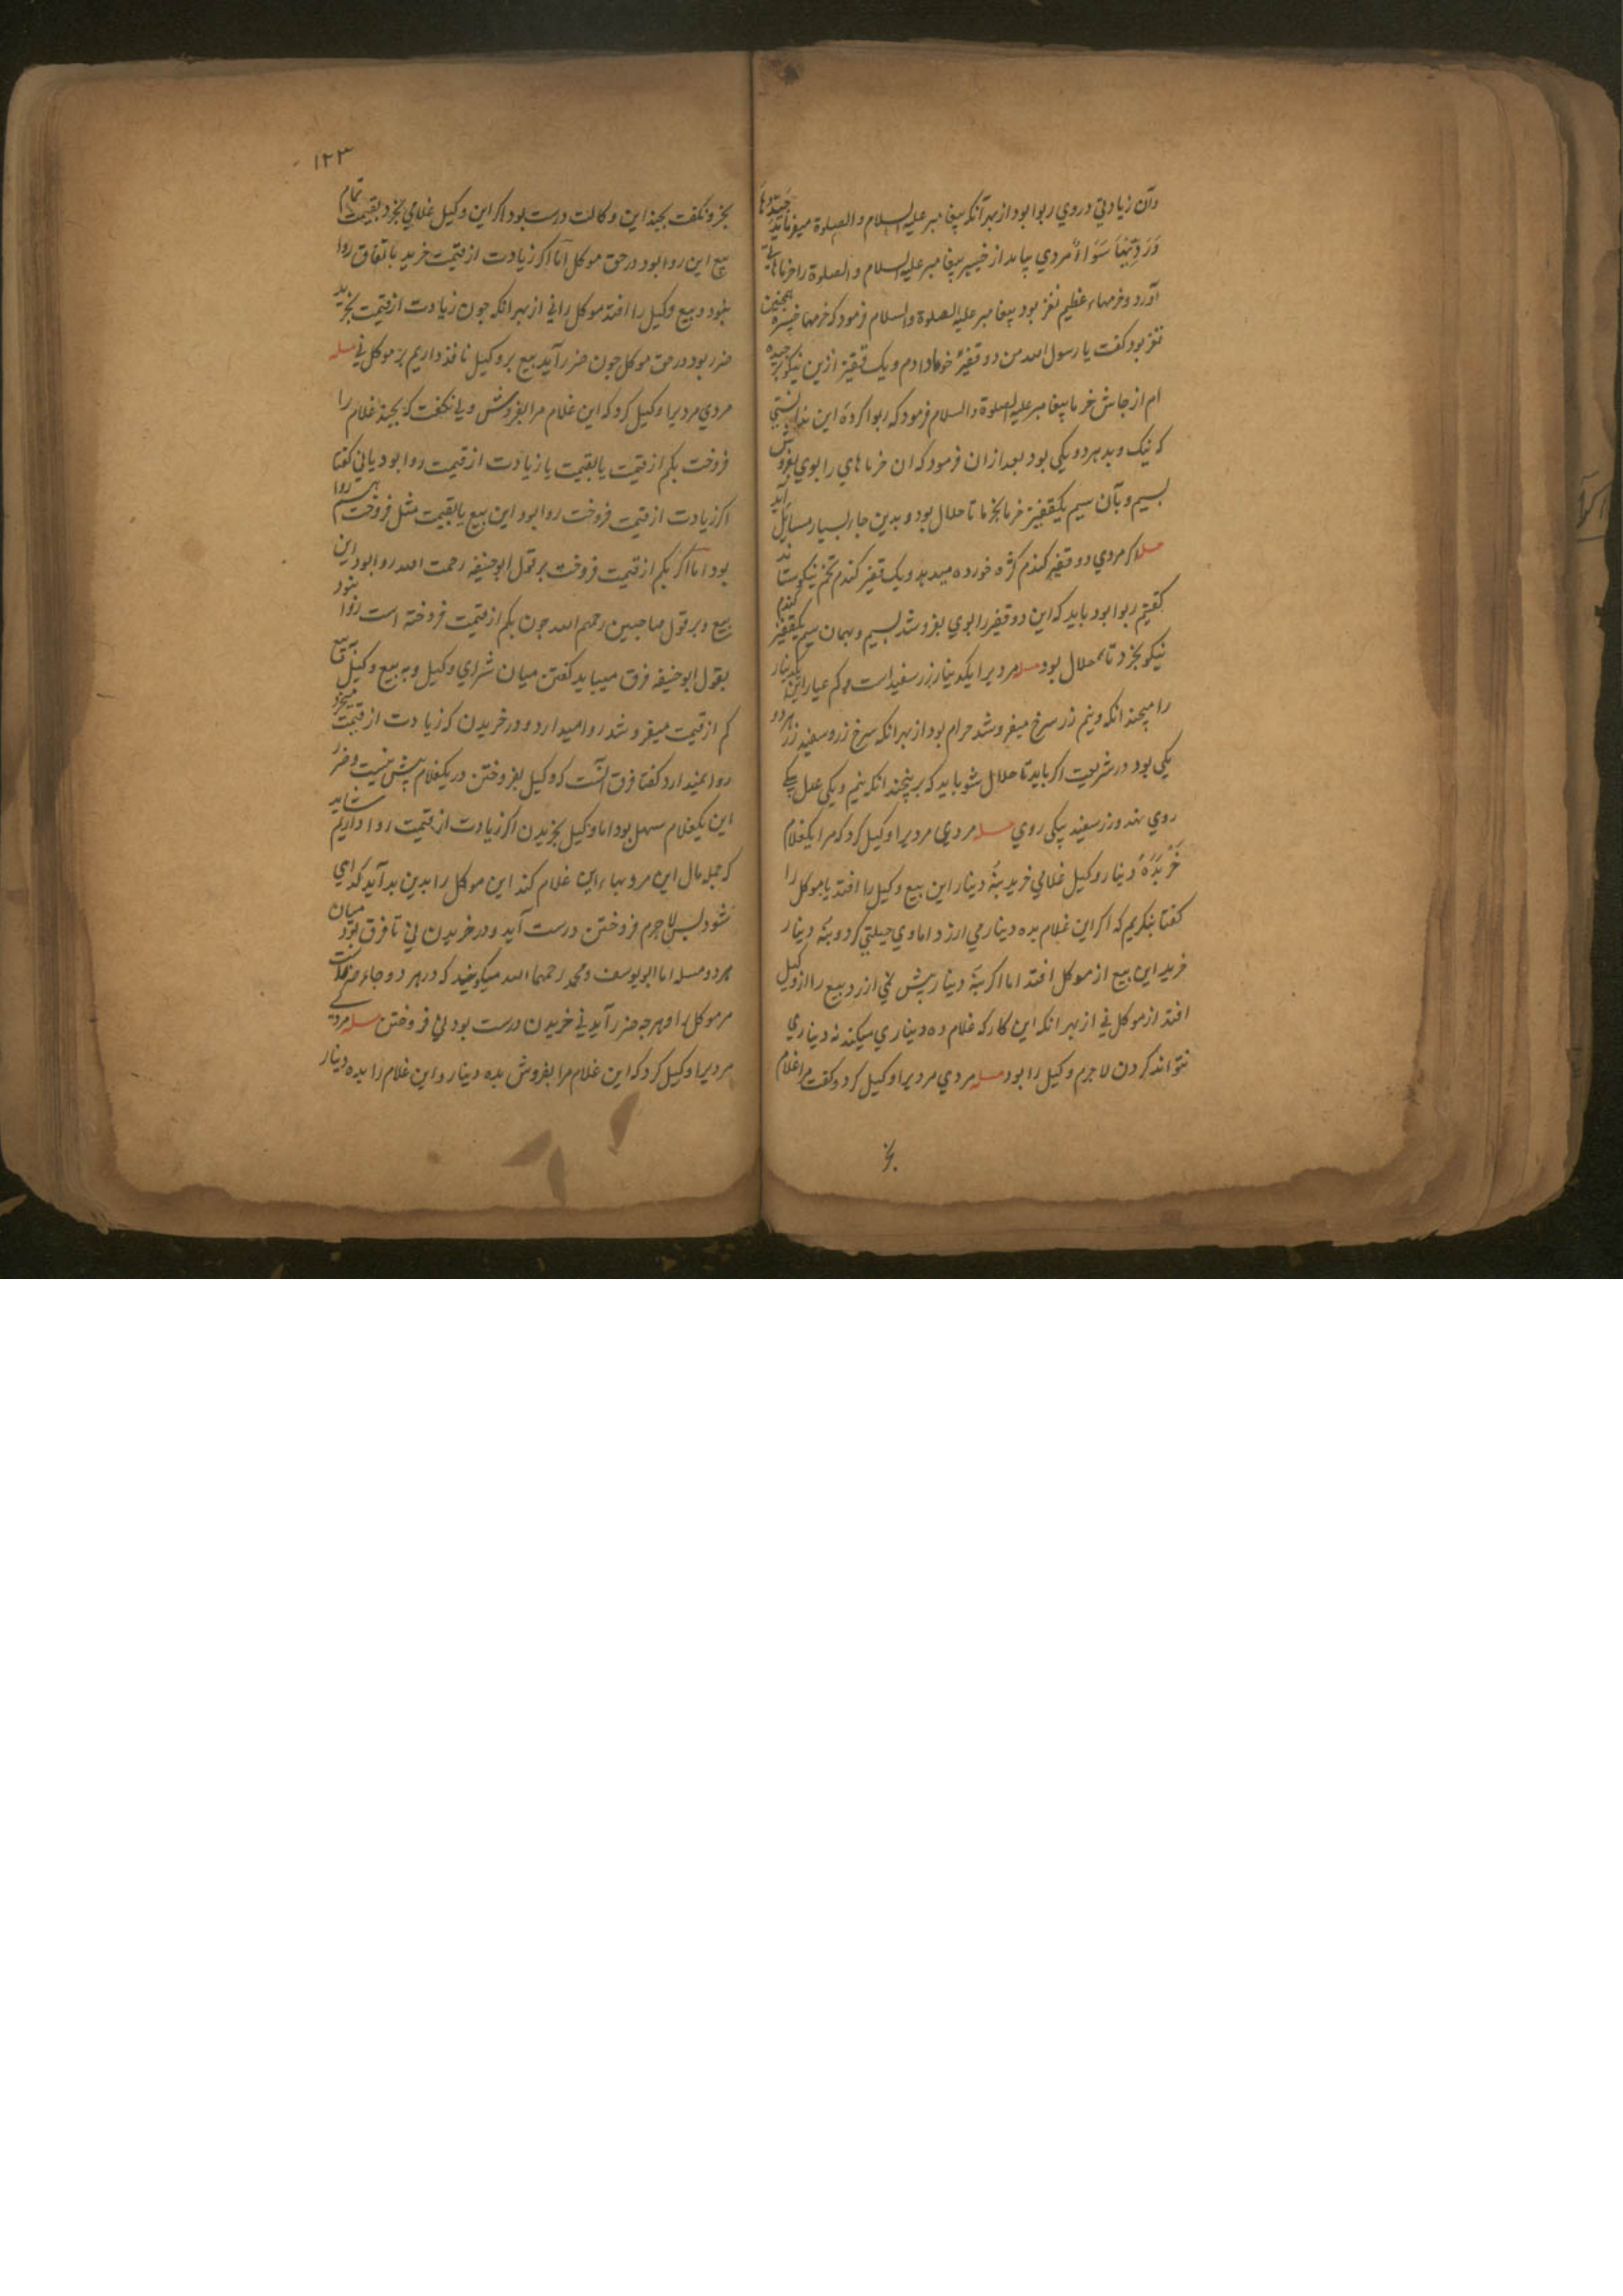 وآن زیادتی در وی ربوا بود از بهر آنکه پیغامبر علیه السلام والصلوة میفرماید جَیِّدُهَا
وَرَدِیُّهَا سَوَاءٌ مردی بیامد از خیبر پیغامبر علیه السلام والصلوة را خرماهایی
آورد و خرمهاء عظیم نغز بود پیغامبر علیه الصلوة والسلام فرمود که خرمها خیبره همچنین
نغز بود کفت یا رسول الله من دو قفیز خرما دادم و یک قفیز ازین نیکو تر خریده
ام از جاش خرما پیغامبر علیه الصلوة والسلام فرمود که ربوا کردهٔ این ندانستی
که نیک و بد هر دو یکی بود بعد ازان فرمود که ان خرماهای را بوی بفروش
بسیم و بآن سیم یکقفیز خرما بخر ما تا حلال بود و بدین جا بسیار مسایل آید
مسله اکر مردی دو قفیز کندم کره خورده میدهد و یک قفیز کندم تخم نیکو ستاند
کفتیم ربوا بود باید که این دو قفیز را بوی بفروشد بسیم و بهمان سیم یکقفیز کندم
نیکو بخرد تا حلال بود مسله مردیرا یکدینار زر سفید است و کم عیار این یکدینار
را میچند انکه ونیم زر سرخ میفروشد حرام بود از بهر انکه سرخ زر و سفید زر هر دو
یکی بود در شریعت اکر باید تا حلال شو باید که بر پنچند انکه نیم ویکی عدل بیکی
روی نهد و زر سفید بیکی روی مسله مردی مردیرا وکیل کرد که مرا یکغلام
خَر بَدَهْ دینار وکیل غلامی خرید بنُه دینار این بیع وکیل را افتد یا موکل را
کفتا بنکریم که اکر این غلام بده دینار می ارزد اما وی حیلتی کرد و بنُه دینار
خرید این بیع از موکل افتد اما اکر بنُه دینار بیش نمی ارزد بیع را از وکیل
افتد از موکل نی از بهر انکه این کار که غلام ده دیناری میکند نه دیناری
نتواند کردن لاجرم وکیل را بود مسله مردی مردیرا وکیل کرد و کفت مرا غلام
بخر
۱۲۳
بخر و نکفت بچند این وکالت درست بود اکر این وکیل غلامی بخرد بقیمت تمام
بیع این روا بود در حق موکل اما اکر زیادت از قیمت خرید باتفاق روا
نبود و بیع وکیل را افتد موکل را نی از بهر انکه چون زیادت از قیمت بخرید
ضرر بود در حق موکل چون ضرر آید بیع بر وکیل نافذ داریم بر موکل نی مسله
مردی مردیرا وکیل کرد که این غلام مرا بفروش ویی نکفت که بچند غلام را
فروخت بکم از قیمت یا بقیمت یا زیادت از قیمت روا بود یا نی کفتا
اکر زیادت از قیمت فروخت روا بود این بیع یا بقیمت مثل فروخت هم روا
بود اما اکر بکم از قیمت فروخت بر قول ابو حنیفه رحمت الله روا بود این
بیع و بر قول صاحبین رحمهم الله چون بکم از قیمت فروخته است روا نبود
بقول ابوحنیفه فرق میباید کفتن میان شرای وکیل و به بیع وکیل
کم از قیمت میفروشد روا میدارد و در خریدن که زیادت از قیمت میخرد
روا نمیدارد کفتا فرق آنست که وکیل بفروختن در یکغلام بیش نیست و ضرر
این یکغلام سهل بود اما وکیل بخریدن اکر زیادت از قیمت روا داریم شاید
که جمله مال این مرد بهاء این غلام کند این موکل را بدین بد آید کدای
شود پس لاجرم فروختن درست آید و در خریدن نی تا فرق بود میان
هر دو مسله اما ابو یوسف و محمد رحمهما الله میکویند که در هر دو جاء ضرر است
مر موکل را و هر جه ضرر آید نی خریدن درست بود نی فروختن مسله مردی
مردیرا وکیل کرد که این غلام مرا بفروش بده دینار و این غلام را بده دینار